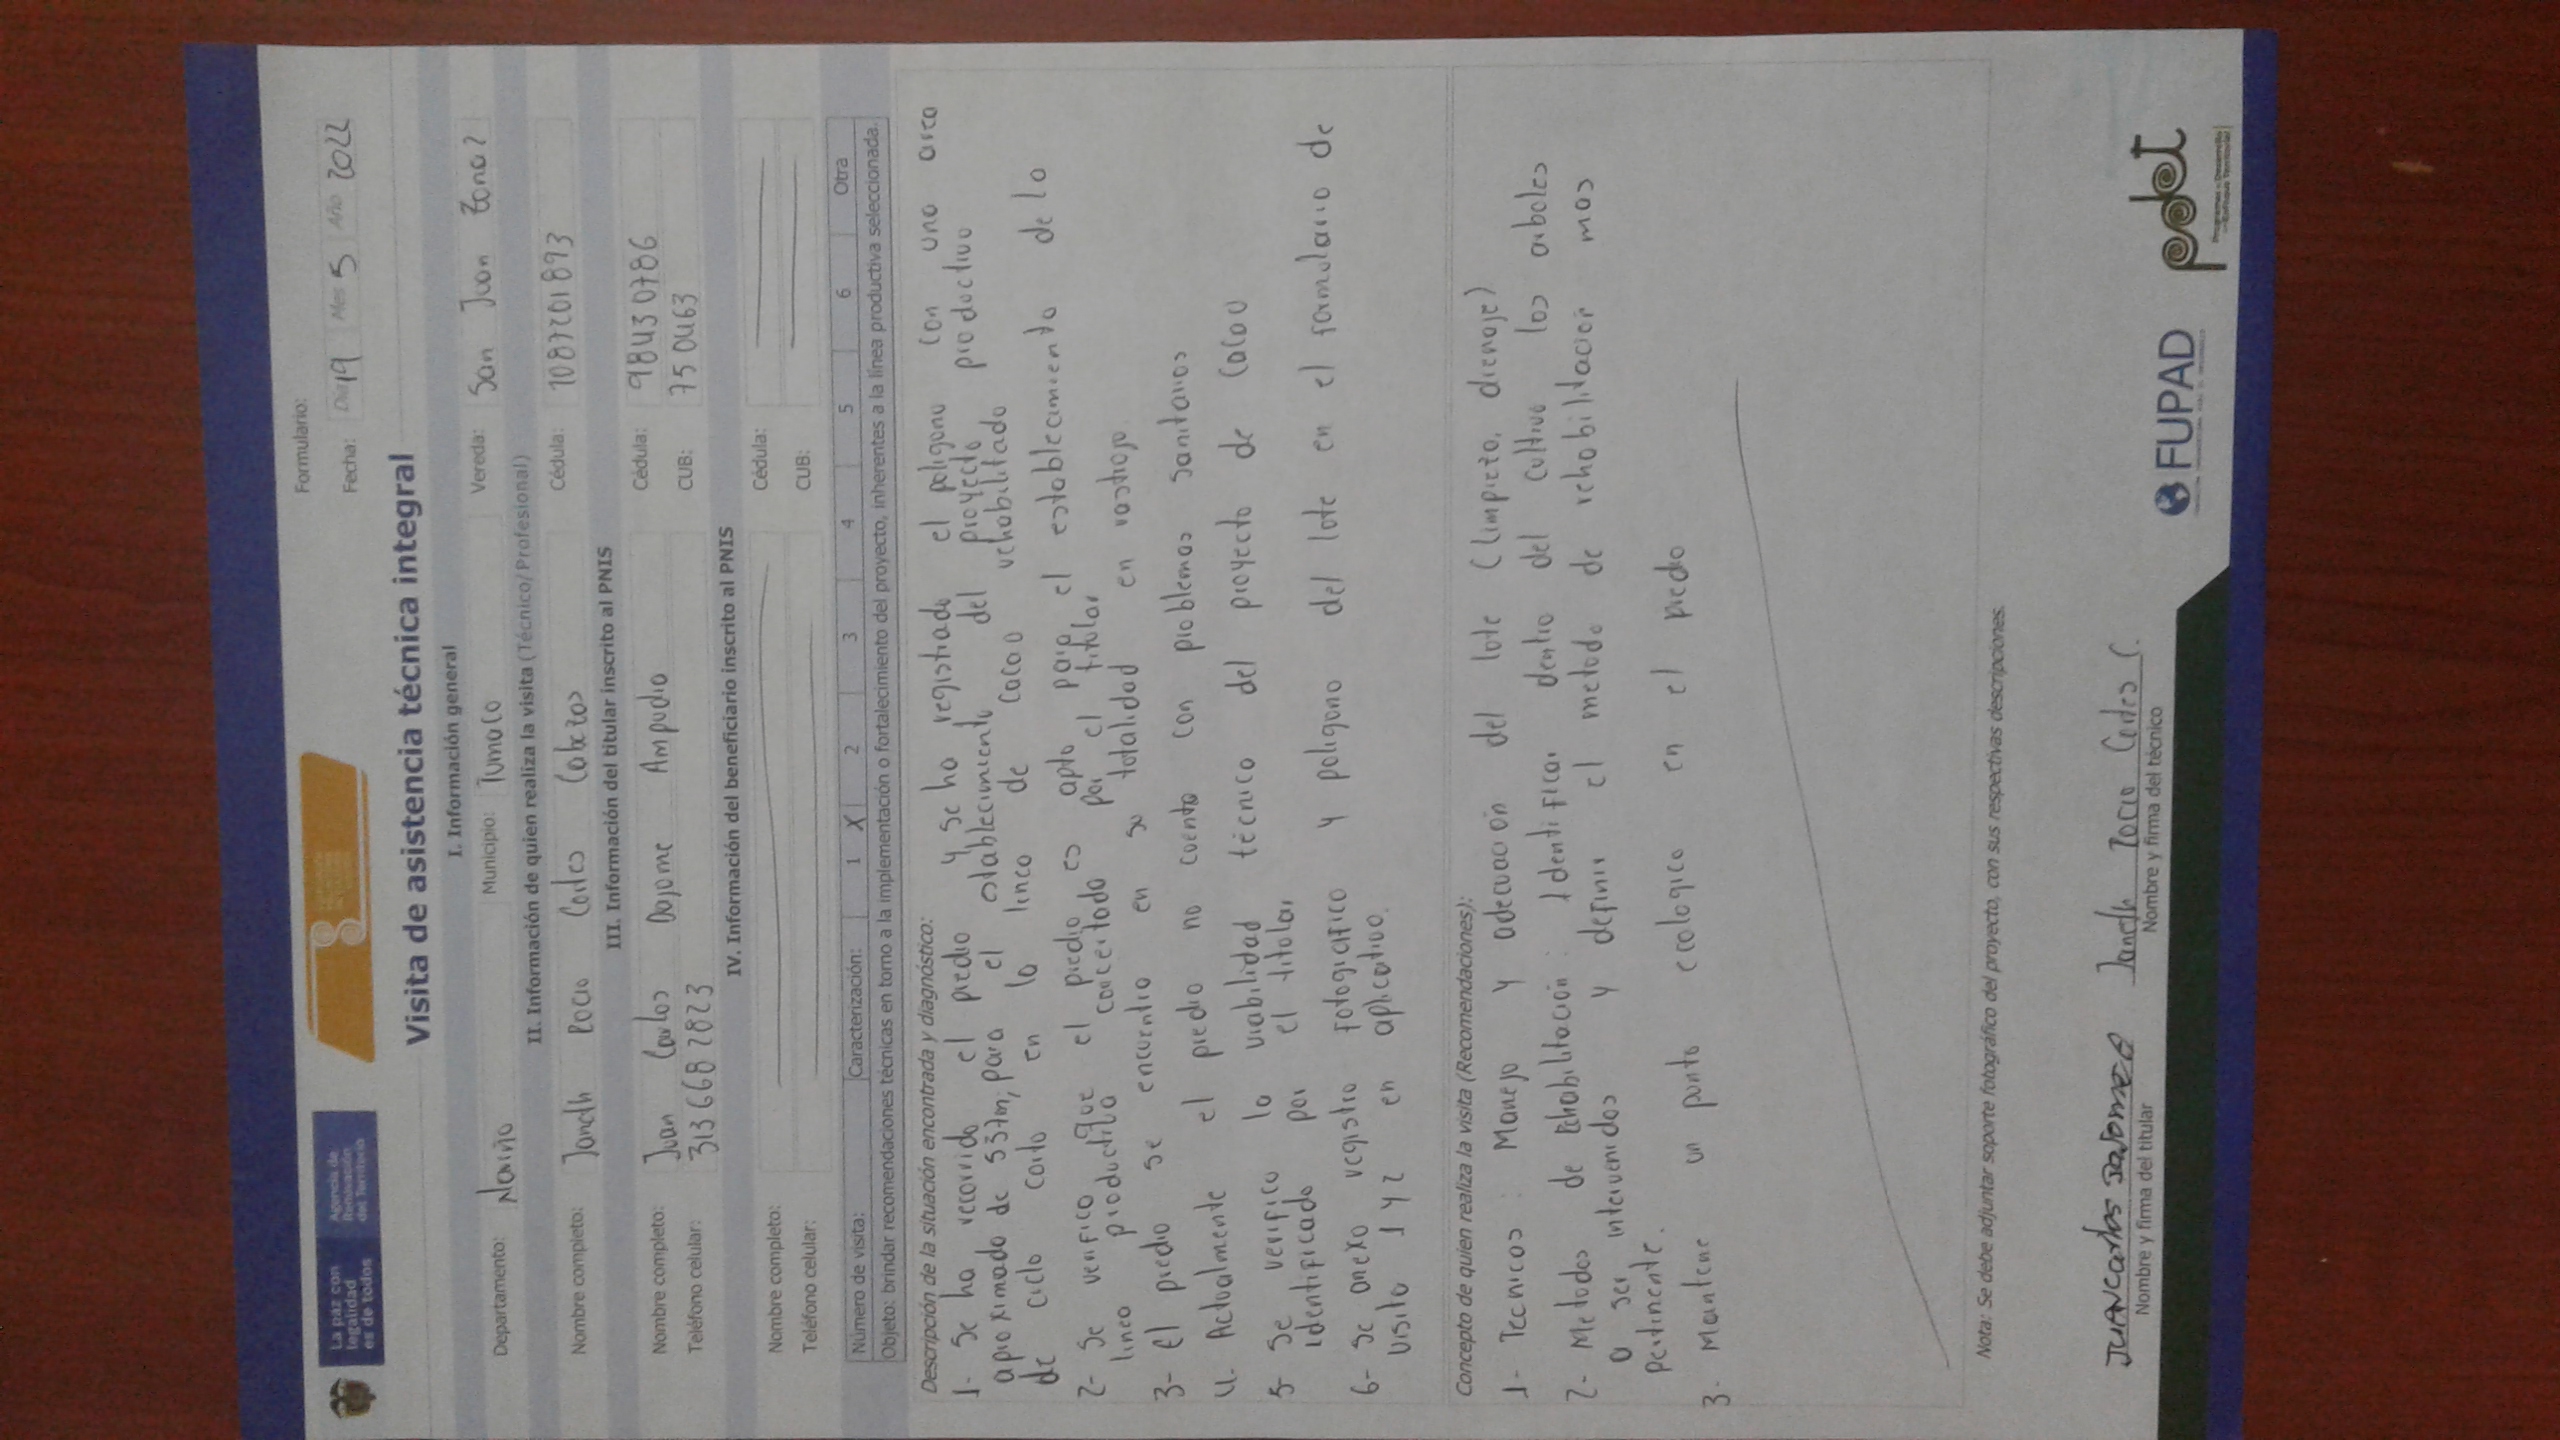 La paz con
legalidad
es de todos
Agencia de
Renovación
del Territorio
Formulario:
Fecha: Día 19 Mes 5 Año 2022
Visita de asistencia técnica integral
I. Información general
Departamento: Nariño Municipio: Tumaco Vereda: San Juan Zona 2
II. Información de quien realiza la visita (Técnico/ Profesional)
Nombre completo: Janeth Rocio Cortes Cabezas Cédula: 1087201893
III. Información del titular inscrito al PNIS
Nombre completo: Juan Carlos Dajome Ampudia Cédula: 98430786
Teléfono celular: 3136682823 CUB: 750463
IV. Información del beneficiario inscrito al PNIS
Nombre completo: Cédula:
Teléfono celular: CUB:
Número de visita: Caracterización: 1 X 2 3 4 5 6 Otra
Objeto: brindar recomendaciones técnicas en torno a la implementación o fortalecimiento del proyecto, inherentes a la línea productiva seleccionada.
Descripción de la situación encontrada y diagnóstico:
1- Se ha recorrido el predio y se ha registrado el poligono con una area
aproximada de 537m; para el establecimiento del proyecto productivo
de ciclo corto en la linea de cacao rehabilitado
2- Se verifico que el predio es apto para el establecimiento de la
linea productiva concertada por el titular
3- El predio se encuentra en su totalidad en rastrojo.
4- Actualmente el predio no cuenta con problemas sanitarios
5- Se verifico la viabilidad técnico del proyecto de cacao
identificado por el titular
6- Se anexo registro fotografico y poligono del lote en el formulario de
visita 1 y 2 en aplicativo.
Concepto de quien realiza la visita (Recomendaciones):
1- Tecnicos : Manejo y adecuación del lote (limpieza, drenaje)
2- Metodos de Rehabilitación : Identificar dentro del cultivo los arboles
a ser intervenidos y definir el metodo de rehabilitacion mas
pertinente.
3- Mantene un punto ecologico en el predio
Nota: Se debe adjuntar soporte fotográfico del proyecto, con sus respectivas descripciones.
JUAN Carlos DaJome A Janeth Rocio Cortes C.
Nombre y firma del titular Nombre y firma del técnico
FUPAD
pdet
Programas de Desarrollo
con Enfoque Territorial